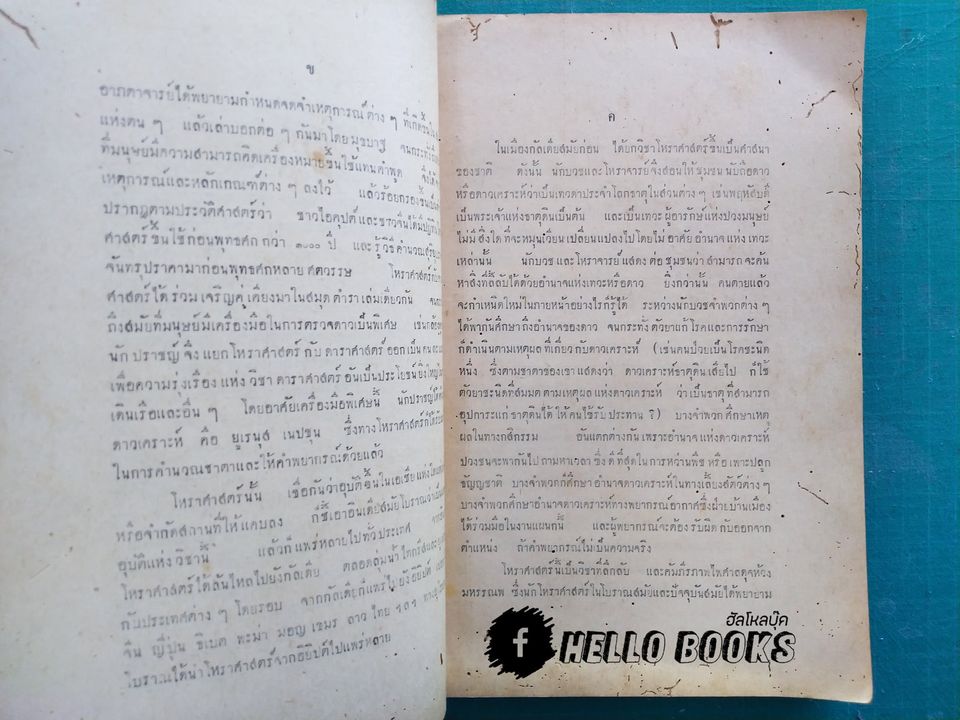 ข
อาภตาจารย์ได้พยายามกำหนดจดจำเหตุการณ์ต่าง ๆ ที่เกิดขึ้นใน
แห่งตน ๆ แล้วเล่าบอกต่อ ๆ กันมาโดยมุขปาฐ จนกระทั่ง
ที่มนุษย์มีความสามารถคิดเครื่องหมายขึ้นใช้แทนคำพูด จึงได้
เหตุการณ์และหลักเกณฑ์ต่าง ๆ ลงไว้ แล้วร้อยกรองขึ้น
ปรากฏตามประวัติศาสตร์ว่า ชาวไอคุปต์และชาวจีนได้มี
ศาสตร์ขึ้นใช้ก่อนพุทธศก กว่า ๓๐๐๐ ปี และรู้วิธีคำนวณ
จันทรุปราคามาก่อนพุทธศกหลายศตวรรษ โหราศาสตร์กับ
ศาสตร์ได้ร่วมเจริญคู่เคียงมาในสมุดตำราเล่มเดียวกัน
ถึงสมัยที่มนุษย์มีเครื่องมือในการตรวจดาวเป็นพิเศษ เช่นกล้อง
นักปราชญ์จึงแยกโหราศาสตร์กับดาราศาสตร์ออกเป็นคนละ
เพื่อความรุ่งเรืองแห่งวิชาดาราศาสตร์อันเป็นประโยชน์ยิ่งใหญ่
เดินเรือและอื่น ๆ โดยอาศัยเครื่องมือพิเศษนี้ นักปราชญ์ได้
ดาวเคราะห์ คือ ยูเรนุส เนปชุน ซึ่งทางโหราศาสตร์ก็ได้
ในการคำนวณชาตาและให้คำพยากรณ์ด้วยแล้ว
โหราศาสตร์นั้น เชื่อกันว่าอุบัติขึ้นในเอเซียแห่ง
หรือจำกัดสถานที่ให้แคบลง ก็ชี้เอาอินเดียสมัยโบราณว่าเป็น
อุบัติแห่งวิชานี้ แล้วก็แพร่หลายไปทั่วประเทศ
โหราศาสตร์ได้ล้นไหลไปยังกัลเดีย ตลอดลุ่มน้ำไทกริสและ
กับประเทศต่าง ๆ โดยรอบ จากกัลเดียก็แพร่ไปยังอียิปต์
จีน ญี่ปุ่น ธิเบต พะม่า มอญ เขมร ลาว ไทย ฯลฯ ทาง
โบราณได้นำโหราศาสตร์จากอียิปต์ไปแพร่หลาย
ค
ในเมืองกัลเดียสมัยก่อน ได้ยกวิชาโหราศาสตร์ขึ้นเป็นศาสนา
ของชาติ ดังนั้น นักบวชและโหราจารย์จึงสอนให้ชุมชนนับถือดาว
หรือดาวเคราะห์ว่าเป็นเทวดาประจำโลกธาตุในส่วนต่าง ๆ เช่นพฤหัสบดี
เป็นพระเจ้าแห่งธาตุดินเป็นต้น และเป็นเทวะผู้อารักษ์แห่งปวงมนุษย์
ไม่มีสิ่งใดที่จะหมุนเวียนเปลี่ยนแปลงไปโดยไม่อาศัยอำนาจแห่งเทวะ
เหล่านั้น นักบวชและโหราจารย์แสดงต่อชุมชนว่าสามารถจะค้น
หาสิ่งที่ลี้ลับได้ด้วยอำนาจแห่งเทวะหรือดาว ยิ่งกว่านั้น คนตายแล้ว
จะกำเหนิดใหม่ในภายหน้าอย่างไรก็รู้ได้ ระหว่างนักบวชจำพวกต่าง ๆ
ได้พากันศึกษาถึงอำนาจของดาว จนกระทั่งตัวยาแก้โรคและการรักษา
ก็ดำเนินตามเหตุผลที่เกี่ยวกับดาวเคราะห์ (เช่นคนป่วยเป็นโรคชะนิด
หนึ่ง ซึ่งตามชาตาของเขาแสดงว่า ดาวเคราะห์ธาตุดินเสื่อไป ก็ใช้
ตัวยาชะนิดที่สมมตตามเหตุผลแห่งดาวเคราะห์ ว่าเป็นธาตุที่สามารถ
อุปการะแก่ธาตุดินได้ให้คนไข้รับประทาน ?) บางจำพวกศึกษาเหตุ
ผลในทางกสิกรรม อันแตกต่างกันเพราะอำนาจแห่งดาวเคราะห์
ปวงชนจะพากันไปถามหาเวลาซึ่งดีที่สุดในการหว่านพืชหรือเพาะปลูก
ธัญญชาติ บางจำพวกก็ศึกษาอำนาจดาวเคราะห์ในทางเลี้ยงสัตว์ต่าง ๆ
บางจำพวกศึกษาอำนาจดาวเคราะห์ทางพยากรณ์อากาศซึ่งฝ่ายบ้านเมือง
ได้ร่วมมือในงานแผนกนี้ และผู้พยากรณ์จะต้องรับผิดกับออกจาก
ตำแหน่ง ถ้าคำพยากรณ์ไม่เป็นความจริง
โหราศาสตร์นี้เป็นวิชาที่ลึกลับ และคัมภีรภาพไพศาลดุจห้วง
มหรรณพ ซึ่งนักโหราศาสตร์ในโบราณสมัยและปัจจุบันสมัยได้พยายาม
ฮัลโหลบุ๊ค
f HELLO BOOKS